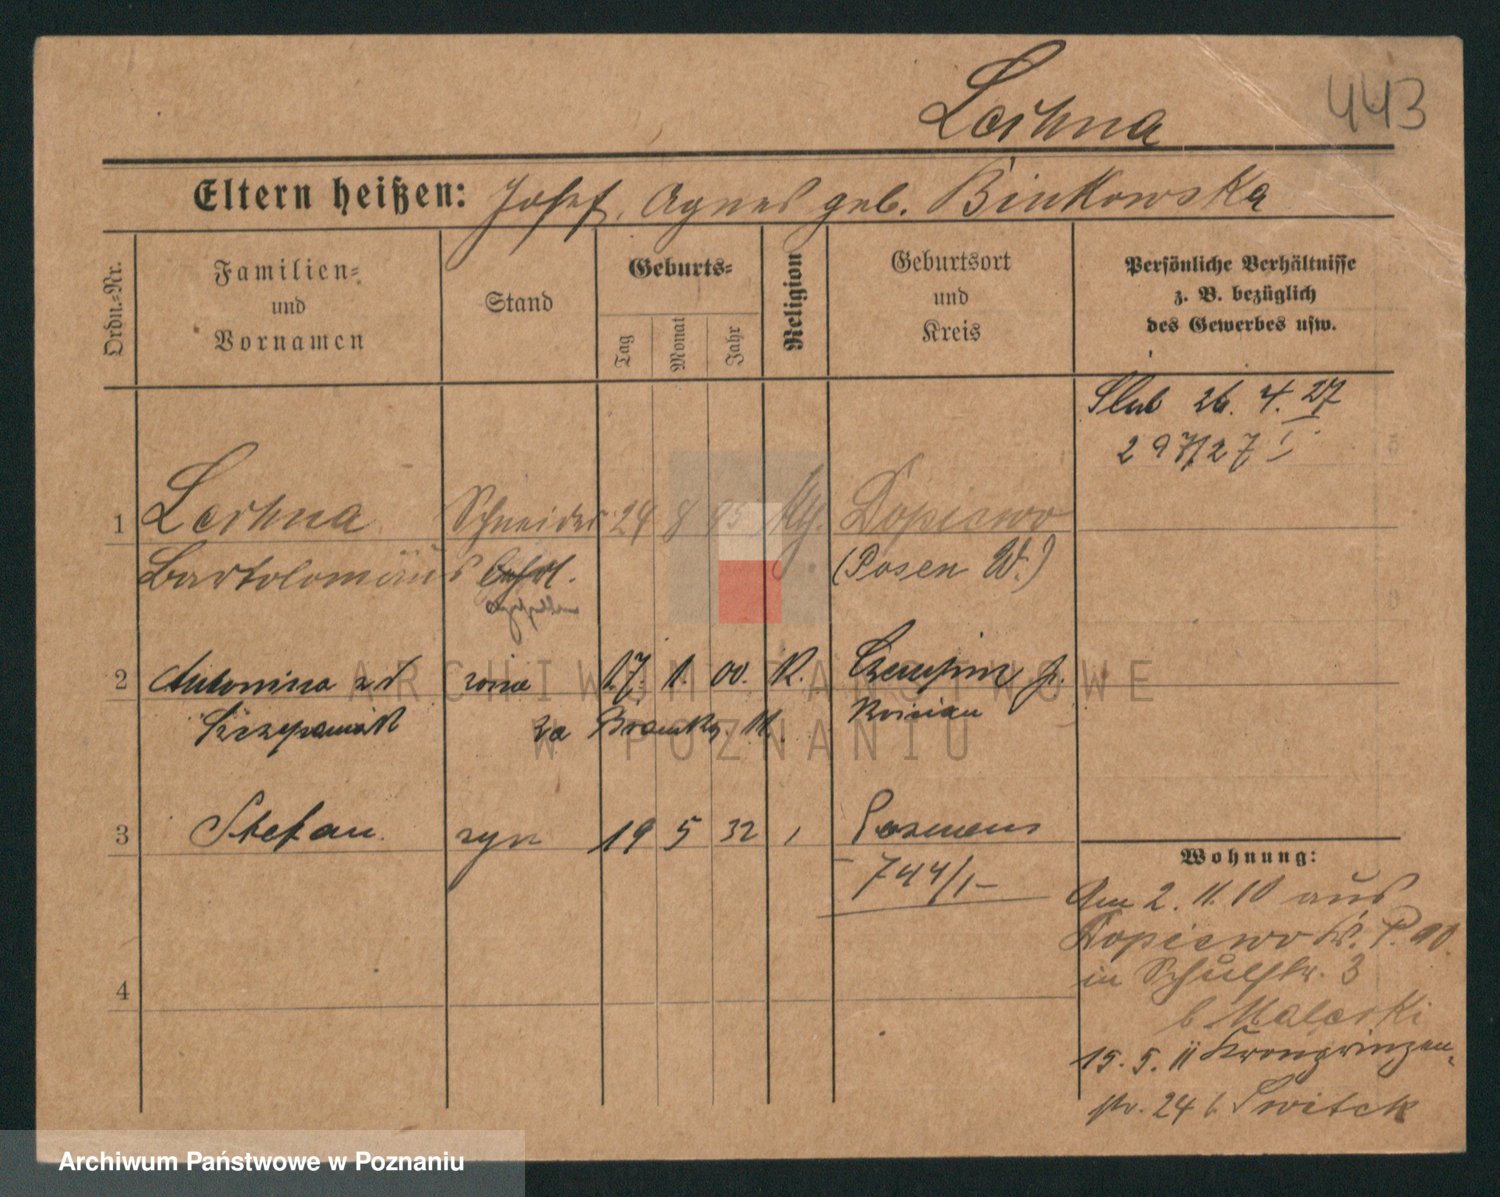 443
Leihna
Eltern heißen: Josef, Agnes geb. Binkowska
Ordn.-Nr.
Familien-
und
Vornamen
Stand
Geburts-
Tag
Monat
Jahr
Religion
Geburtsort
und
Kreis
Persönliche Verhältnisse
z. B. bezüglich
des Gewerbes usw.
Ślub 26. 4. 27
297/27 I
1 Leihna Schneider 24 8 95 Kopiewo
Bartolomäus (Posen W.)
2 Antonina zd żona 17. 1. 00. R.
Szczepaniak za Kościan
3 Stefan syn 19 5 32 Poznań
744/1-
4
Wohnung:
Am 2. 11. 10 aus
Kopiewo W.
in Schulstr. 3
b Maleski
15. 5. 11 Kronprinzen-
str. 24 b. Switek
ARCHIWUM PAŃSTWOWE
W POZNANIU
Archiwum Państwowe w Poznaniu